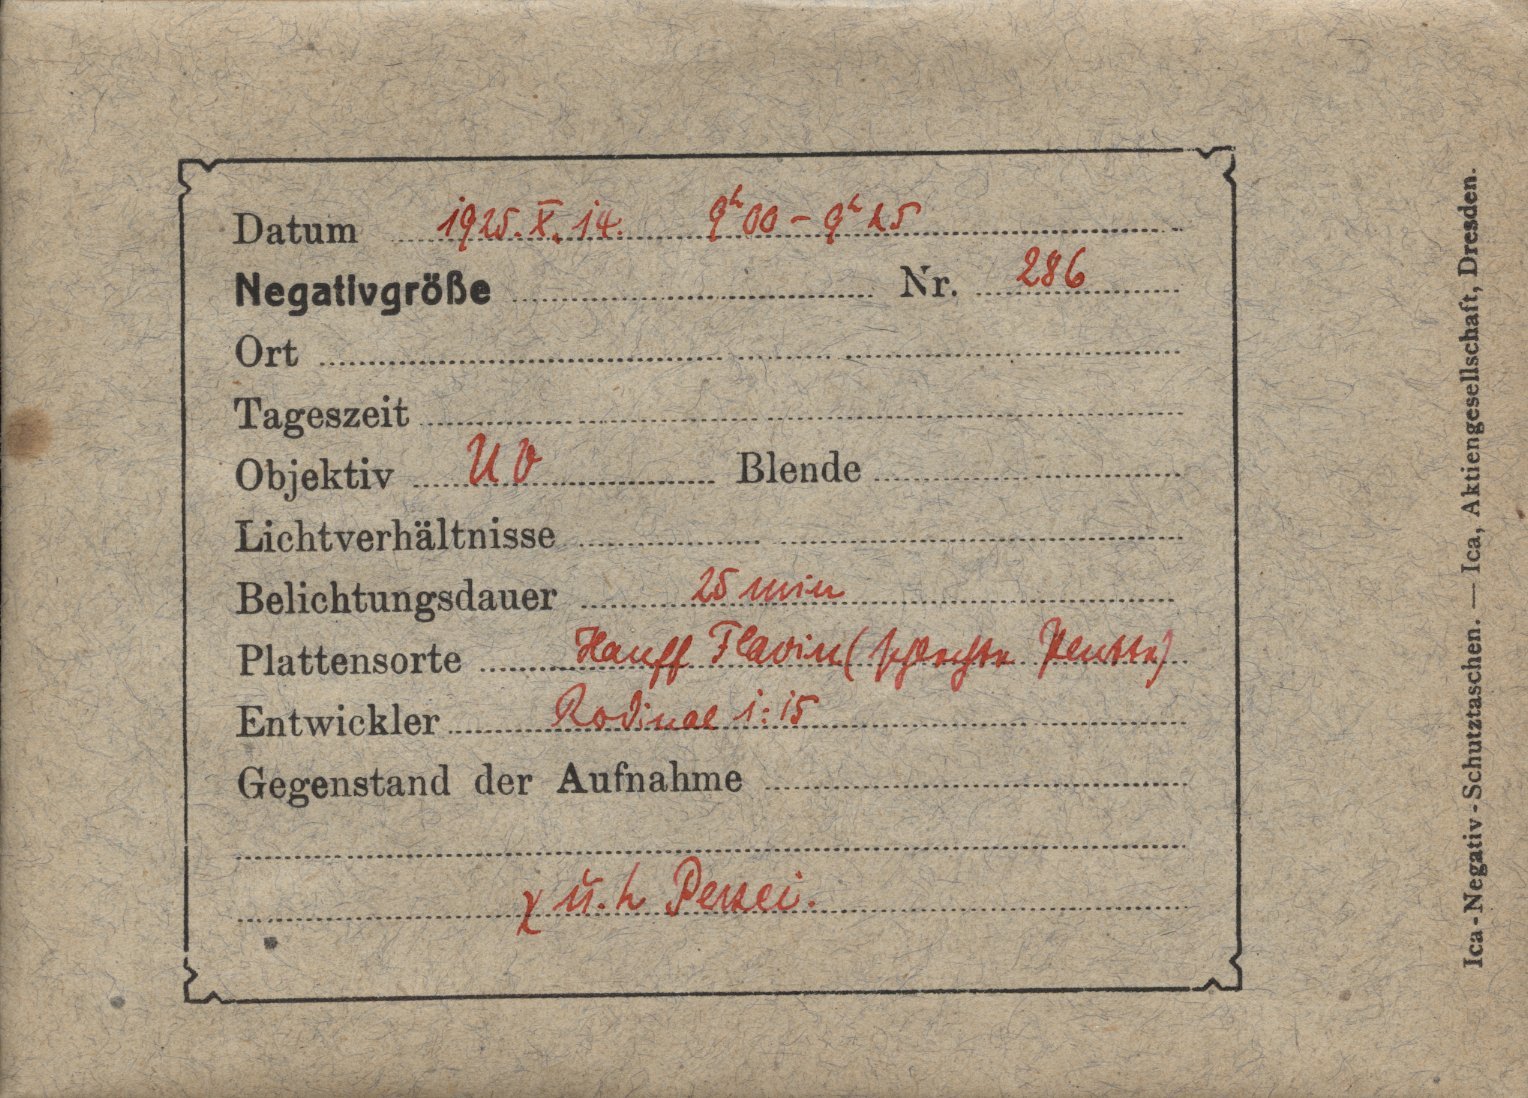 Datum 1925. X. 14. 9h00 – 9h25
Negativgröße Nr. 286
Ort
Tageszeit
Objektiv UV Blende
Lichtverhältnisse
Belichtungsdauer 25 min
Plattensorte Hauff Flavin (schlechte Platte)
Entwickler Rodinal 1:15
Gegenstand der Aufnahme
χ u. h Persei.
Ica-Negativ-Schutztaschen. — Ica, Aktiengesellschaft, Dresden.